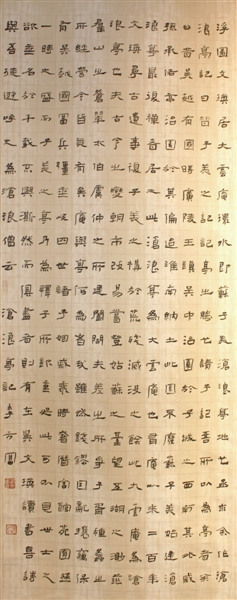 浮圖文瑛居大雲庵環水即蘇子美滄浪亭之地也亟求余作滄
浪亭記曰昔子美之記記亭之勝也請子記吾所以為亭者余
曰昔吳越有國時廣陵王鎮吳中治南園於子城之西南其外戚
孫承佑亦治園於其偏迨淮南納土此園不廢蘇子美始建滄
浪亭最後禪者居之此滄浪亭為大雲庵也有庵以來二百年
文瑛尋古遺事復子美之構於荒殘滅沒之餘此大雲庵為滄
浪亭也夫古今之變朝市改易嘗登姑蘇之臺望五湖之渺茫
群山之蒼翠太伯虞仲之所建闔閭夫差之所爭子胥種蠡之
所經營今皆無有矣庵與亭何為者哉雖然錢鏐因亂攘竊保
有吳越國富兵強垂及四世諸子姻戚乘時奢僭宮館苑囿極
一時之盛而子美之亭乃為釋子所欽重如此可以見士之
欲垂名於千載不與澌然而俱盡者則有在矣文瑛讀書喜詩
與吾徒遊呼之為滄浪僧云 滄浪亭記